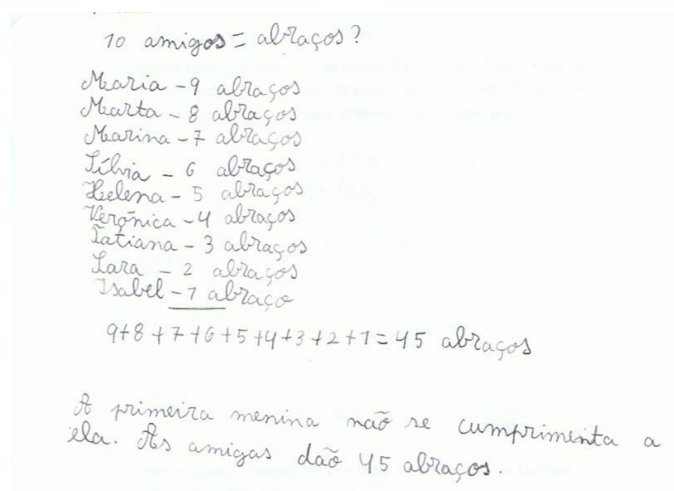 10 amigos = abraços?
Maria - 9 abraços
Marta - 8 abraços
Marina - 7 abraços
Sílvia - 6 abraços
Helena - 5 abraços
Verônica - 4 abraços
Tatiana - 3 abraços
Sara - 2 abraços
Isabel - 1 abraço
9+8+7+6+5+4+3+2+1 = 45 abraços
A primeira menina não se cumprimenta a
ela. As amigas dão 45 abraços.